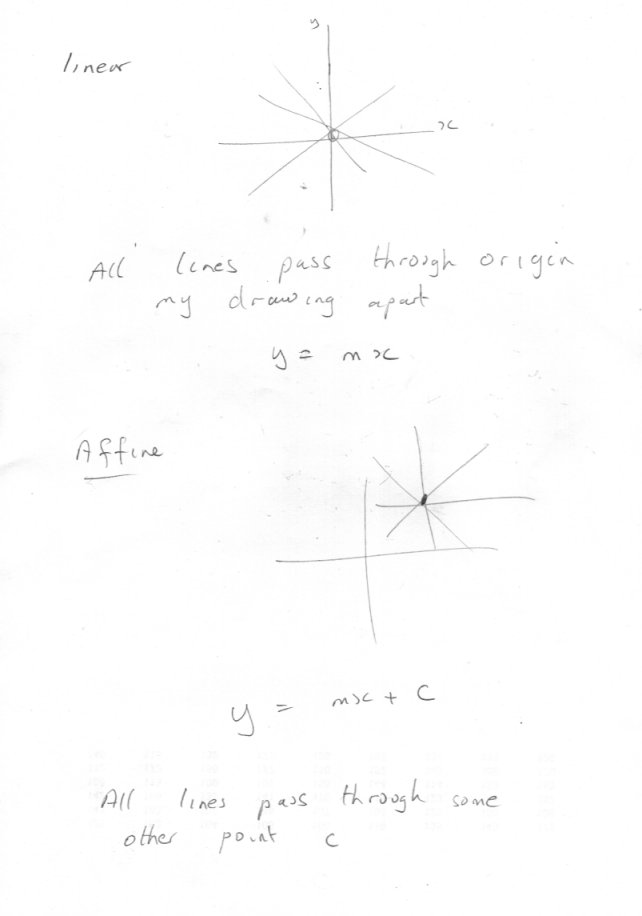 y
linear
x
All lines pass through origin
my drawing apart
y = mx
Affine
y = mx + c
All lines pass through some
other point c